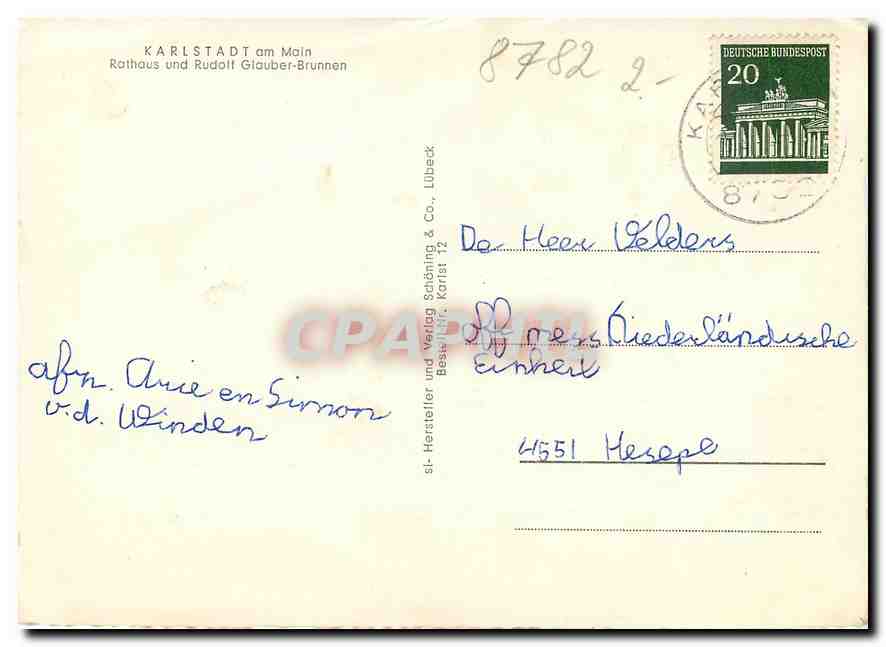 KARLSTADT am Main
Rathaus und Rudolf Glauber-Brunnen
8782 2.-
DEUTSCHE BUNDESPOST
20
KAR
87
sl- Hersteller und Verlag Schöning & Co., Lübeck
Bestell-Nr. Karlst 12
CPAPHIL
De Heer Velders
off mess Niederländische
Einheit
4551 Hesepe
afz. Arie en Simon
v.d. Winden